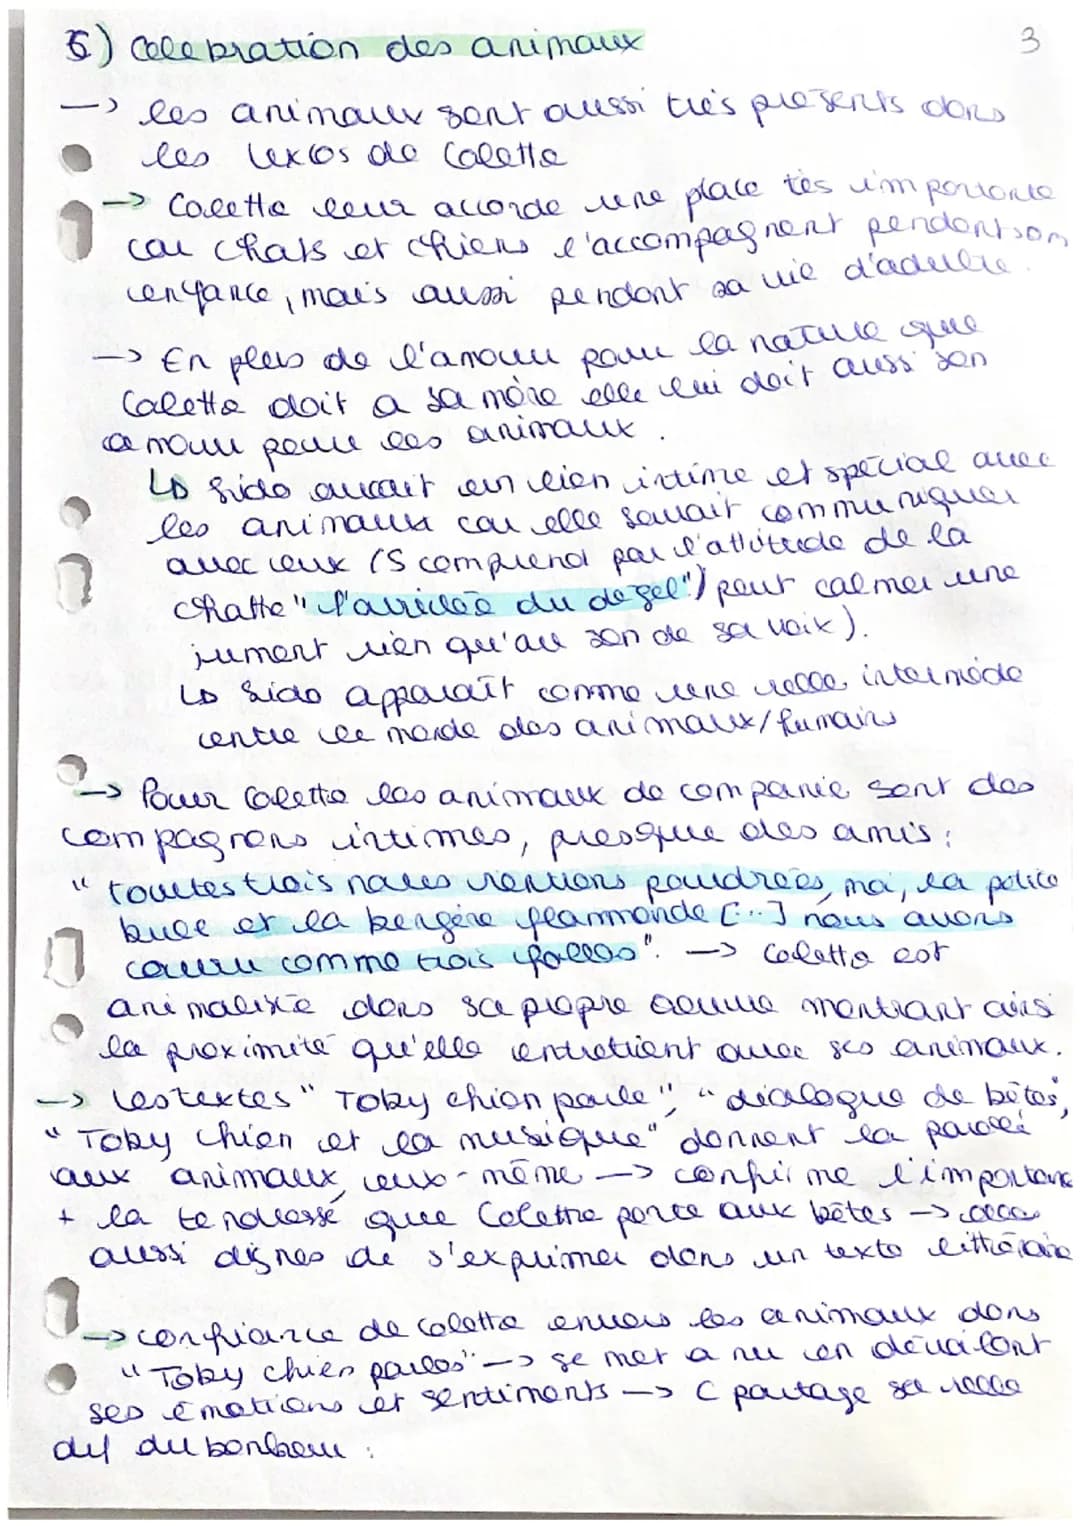 5) Celebration des animaux
3
→ les animaux sont aussi très présents dans
les textes de Colette
→ Colette leur accorde une place tès importante
car chats et chiens l'accompagnent pendant son
enfance, mais aussi pendant sa vie d'adulte.
→ En plus de l'amour pour la nature que
Colette doit a sa mère elle lui doit aussi son
amour pour les animaux.
↳ Sido aurait un lien intime et spécial avec
les animaux car elle savait communiquer
avec eux (S comprend par l'attitude de la
chatte "l'arrivée du dégel") peut calmer une
jument rien qu'au son de sa voix).
↳ Sido apparaît comme une intermède
entre le monde des animaux/humains
→ Pour Colette les animaux de companie sont des
compagnons intimes, presque des amis:
"toutes trois nous rentions poudrées, moi, la petite
bull et la bergère flammande [...] nous avons
couru comme trois folles". → Colette est
animalisée dans sa propre œuvre montrant ainsi
la proximité qu'elle entretient avec ses animaux.
→ les textes "Toby chien parle", "dialogue de bêtes",
"Toby chien et la musique" donnent la parole
aux animaux eux-même → confirme l'importance
+ la tendresse que Colette porte aux bêtes →
aussi dignes de s'exprimer dans un texte littéraire
→ confiance de Colette envers les animaux dans
"Toby chien parles" → se met a nu en dévoilant
ses émotions et sentiments → C partage sa
def du bonheur :